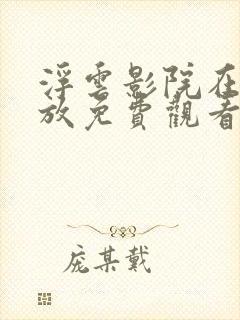 浮雲影院在
放免費觀看
庞某戴